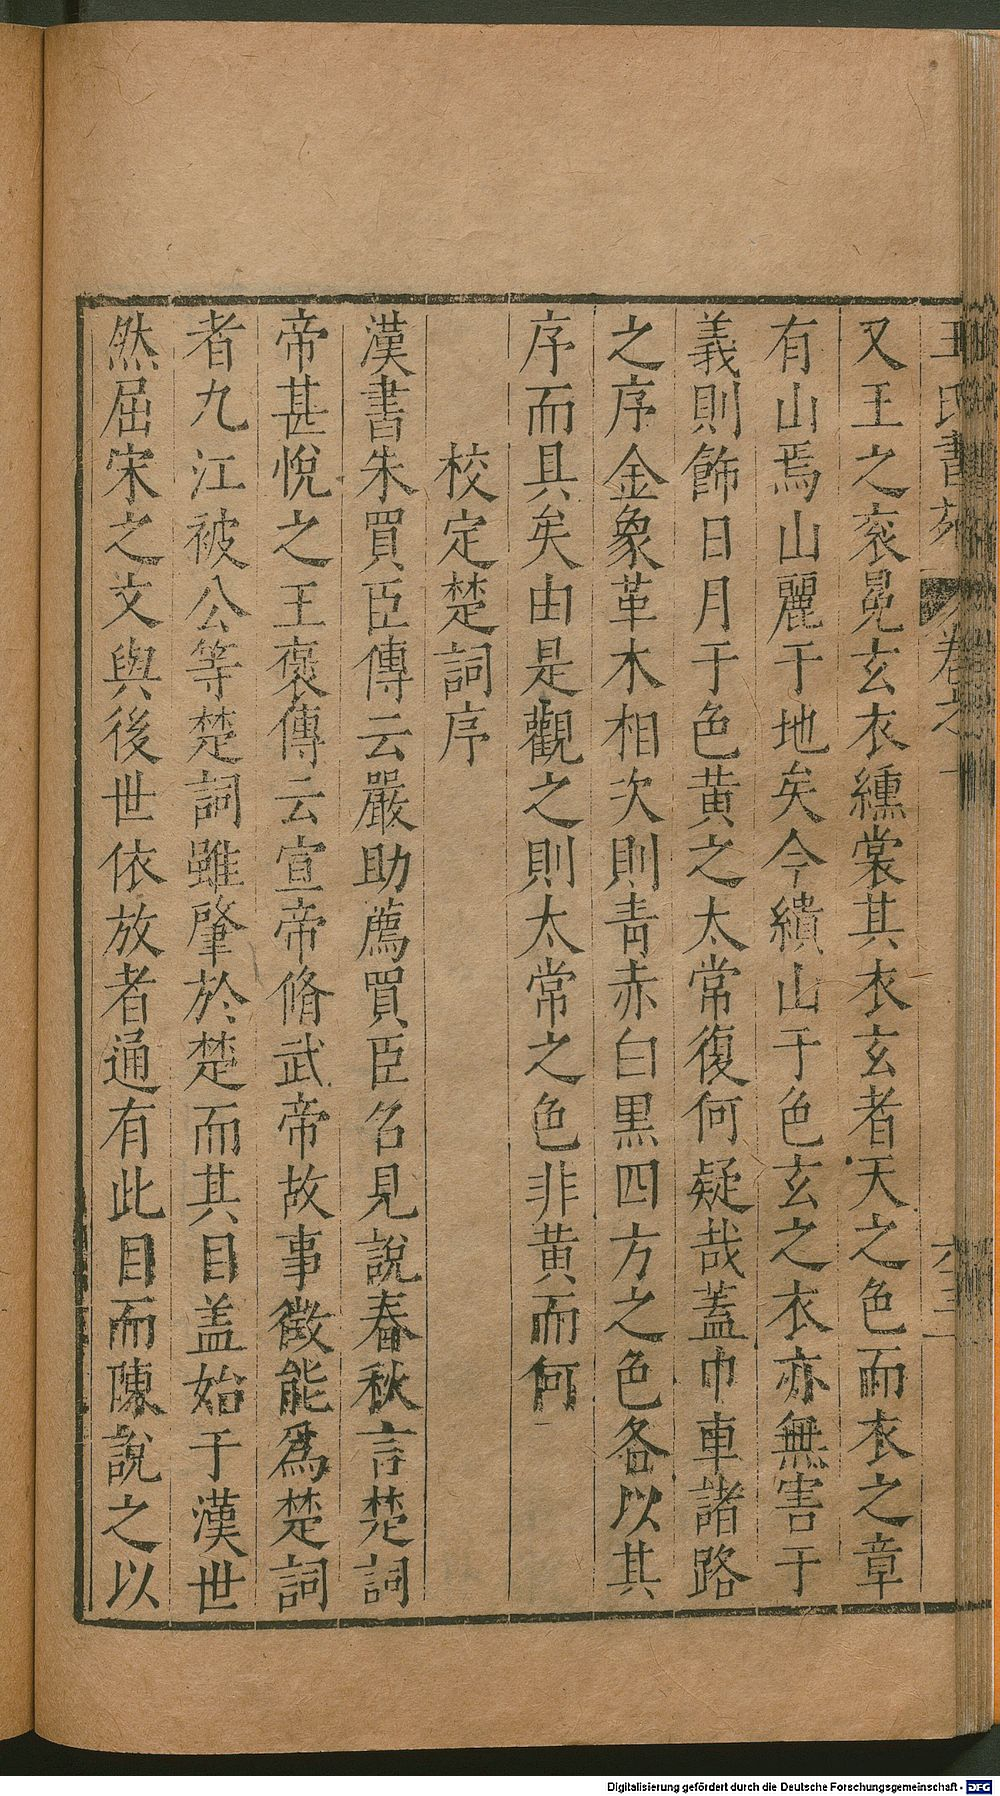 王氏書苑 卷之十 六三
又王之衮冕玄衣纁裳其衣玄者天之色而衣之章
有山焉山麗于地矣今繢山于色玄之衣亦無害于
義則飾日月于色黄之太常復何疑哉蓋巾車諸路
之序金象革木相次則青赤白黒四方之色各以其
序而具矣由是觀之則太常之色非黄而何
校定楚詞序
漢書朱買臣傳云嚴助薦買臣名見說春秋言楚詞
帝甚悅之王褒傳云宣帝脩武帝故事徵能爲楚詞
者九江被公等楚詞雖肇於楚而其目盖始于漢世
然屈宋之文與後世依放者通有此目而陳說之以
Digitalisierung gefördert durch die Deutsche Forschungsgemeinschaft - DFG